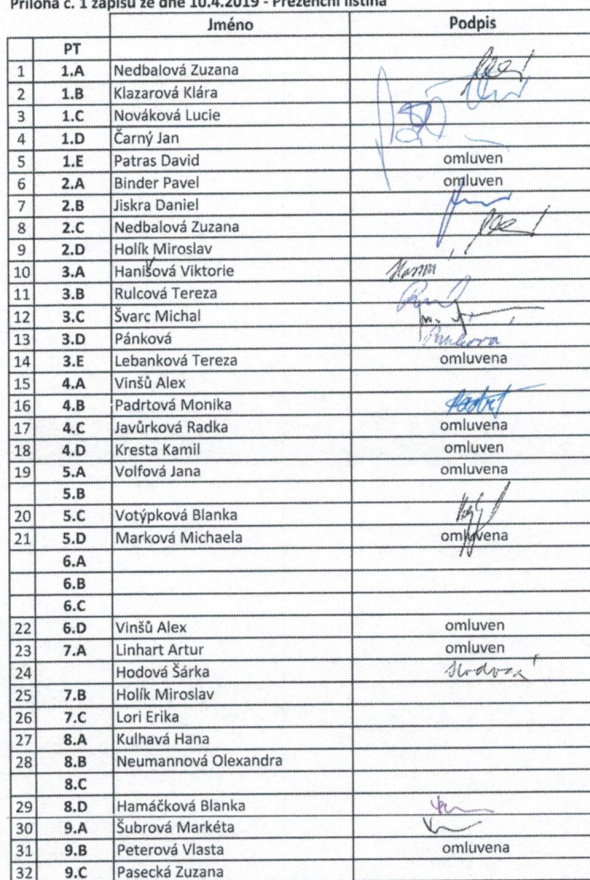 Příloha č. 1 zápisu ze dne 10.4.2019 - Prezenční listina
Jméno Podpis
PT
1 1.A Nedbalová Zuzana
2 1.B Klazarová Klára
3 1.C Nováková Lucie
4 1.D Čarný Jan
5 1.E Patras David omluven
6 2.A Binder Pavel omluven
7 2.B Jiskra Daniel
8 2.C Nedbalová Zuzana
9 2.D Holík Miroslav
10 3.A Hanišová Viktorie
11 3.B Rulcová Tereza
12 3.C Švarc Michal
13 3.D Pánková
14 3.E Lebanková Tereza omluvena
15 4.A Vinšů Alex
16 4.B Padrtová Monika
17 4.C Javůrková Radka omluvena
18 4.D Kresta Kamil omluven
19 5.A Volfová Jana omluvena
5.B
20 5.C Votýpková Blanka
21 5.D Marková Michaela omluvena
6.A
6.B
6.C
22 6.D Vinšů Alex omluven
23 7.A Linhart Artur omluven
24 Hodová Šárka Hodová
25 7.B Holík Miroslav
26 7.C Lori Erika
27 8.A Kulhavá Hana
28 8.B Neumannová Olexandra
8.C
29 8.D Hamáčková Blanka
30 9.A Šubrová Markéta
31 9.B Peterová Vlasta omluvena
32 9.C Pasecká Zuzana